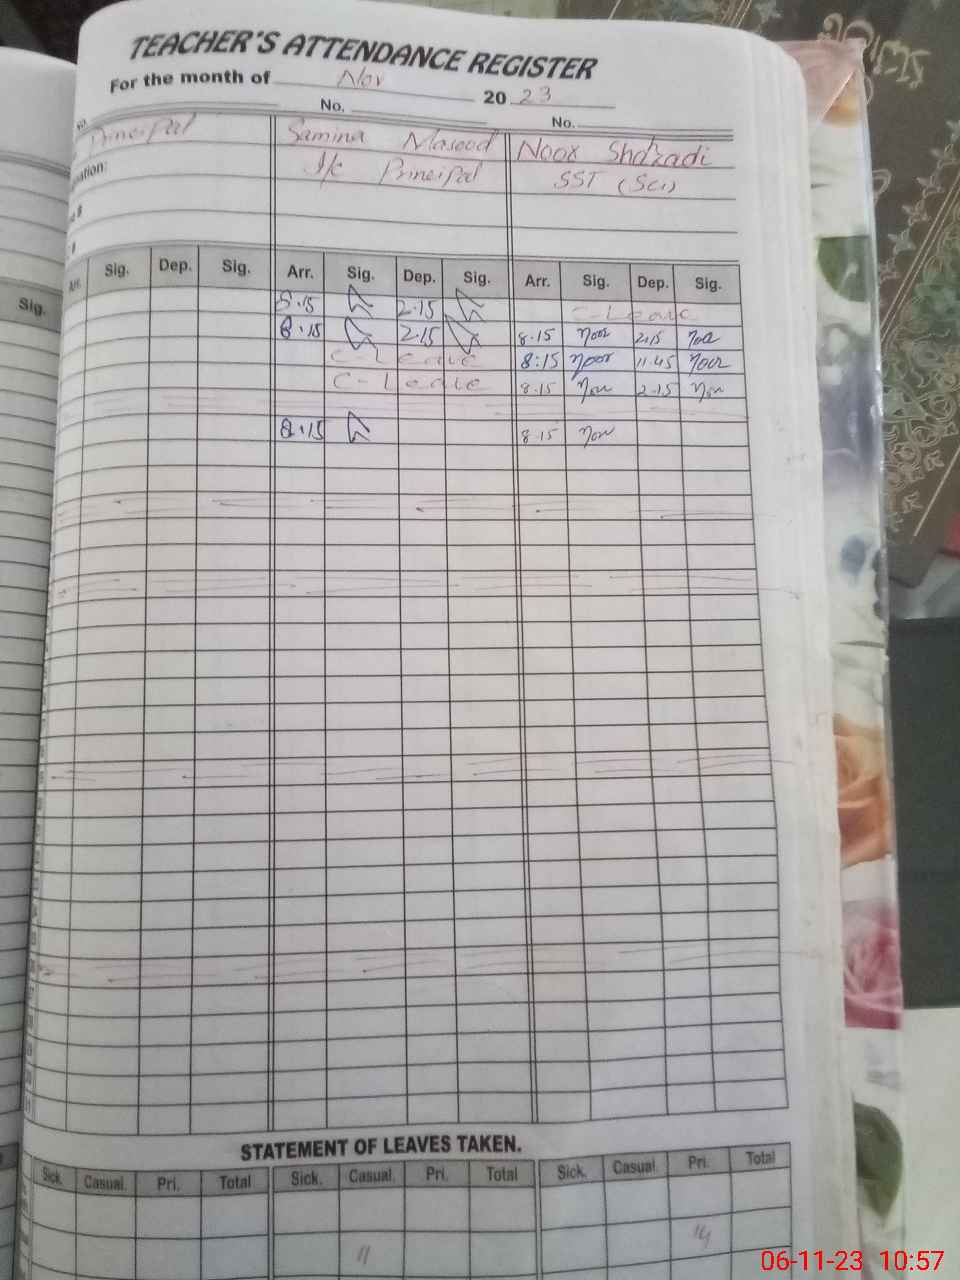 TEACHER'S ATTENDANCE REGISTER
For the month of Nov 2023
No. No.
Principal Samina Masood Noor Shahzadi
I/c Principal SST (Sci)
Sig. Dep. Sig. Arr. Sig. Dep. Sig. Arr. Sig. Dep. Sig.
Sig.
8.15 2.15 C-Leave
8.15 2.15 8.15 Noor 2.15 Noor
C-Leave 8:15 Noor 11.45 Noor
C-Leave 8.15 Noor 2.15 Noor
8.15 8.15 Noor
STATEMENT OF LEAVES TAKEN.
Sick. Casual. Pri. Total Sick. Casual. Pri. Total Sick. Casual. Pri. Total
11 14
06-11-23 10:57